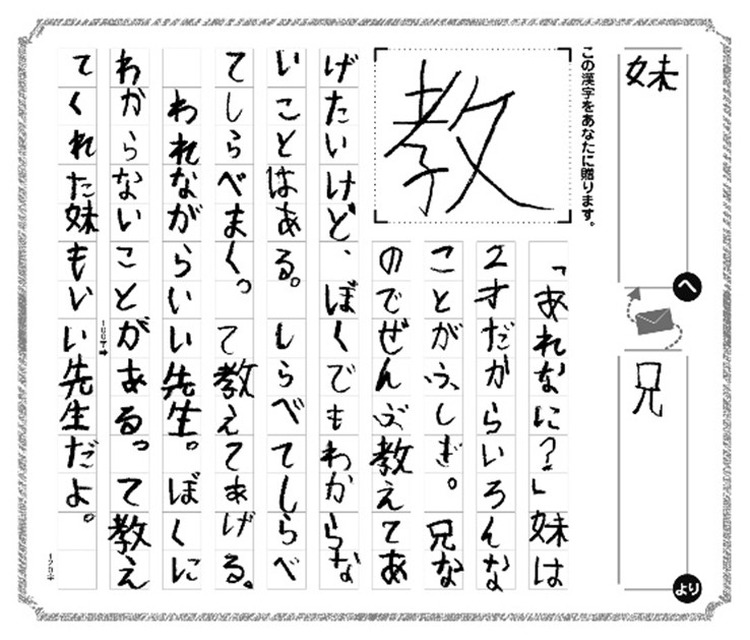 妹
へ
兄
より
この漢字をあなたに贈ります。
教
「あれなに?」妹は
2才だからいろんな
ことがふしぎ。兄な
のでぜんぶ教えてあ
げたいけど、ぼくでもわからな
いことはある。しらべてしらべ
てしらべまくって教えてあげる。
われながらいい先生。ぼくに
わからないことがあるって教え
100字
てくれた妹もいい先生だよ。
120字